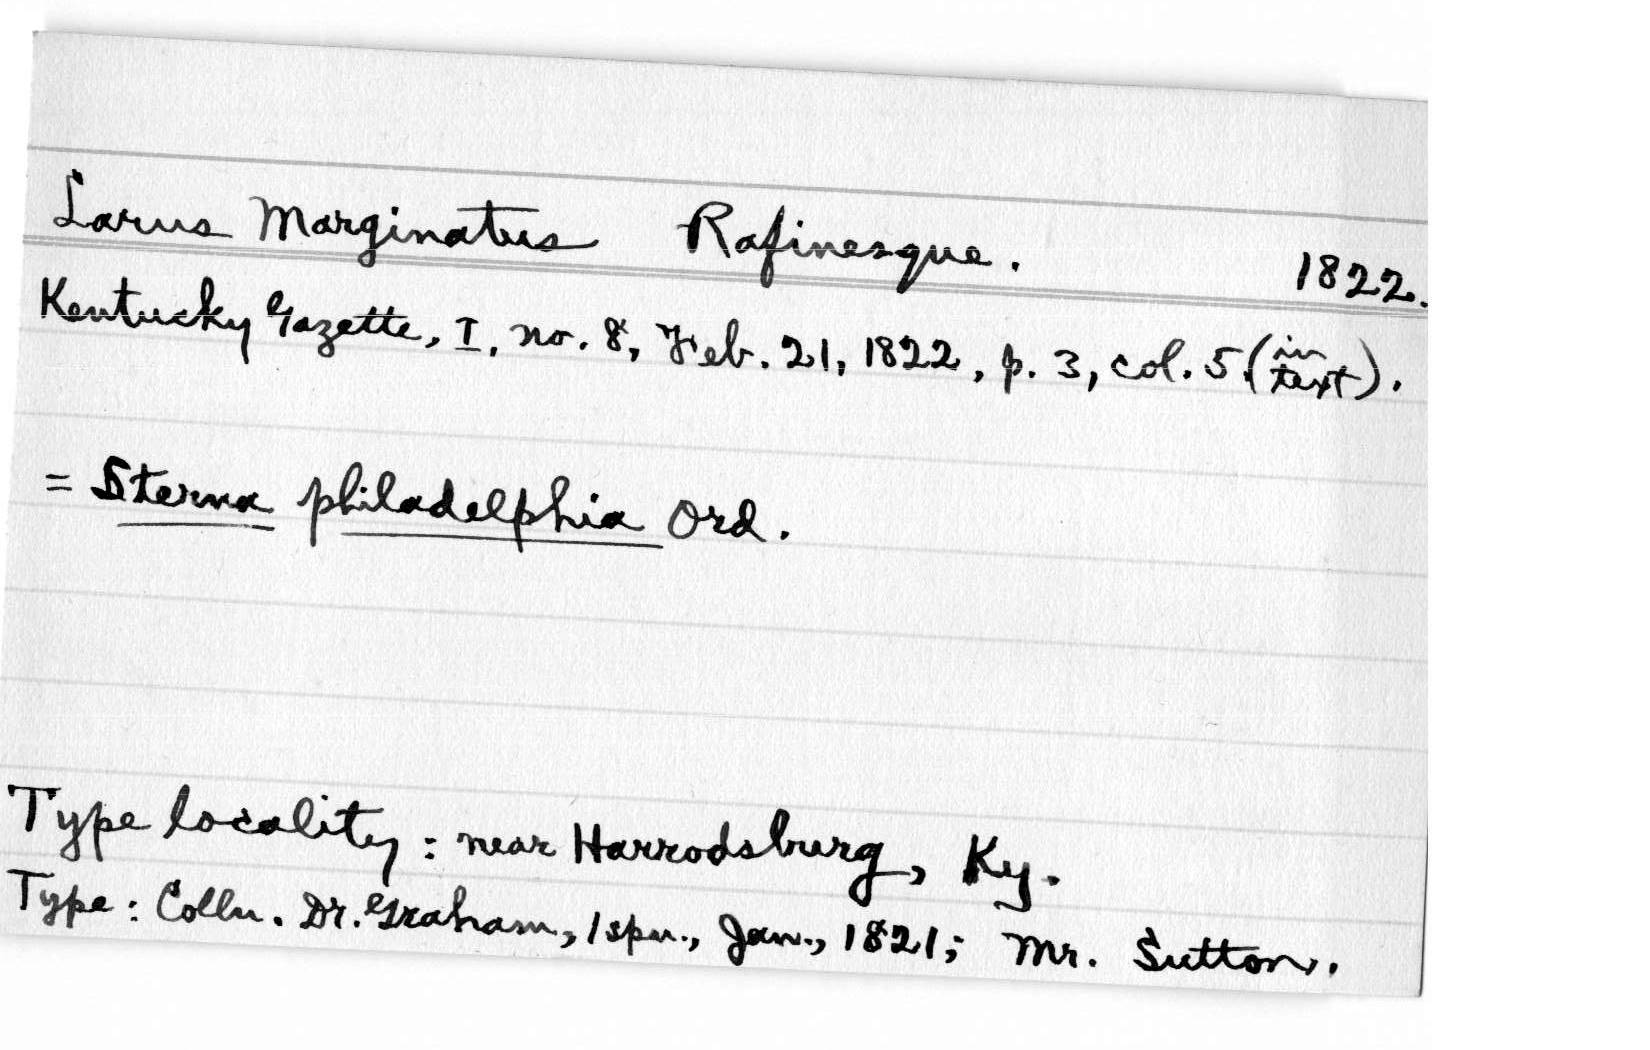 Larus Marginatus Rafinesque. 1822.
Kentucky Gazette, I, no. 8, Feb. 21, 1822, p. 3, col. 5. (in text).
= Sterna philadelphia Ord.
Type locality: near Harrodsburg, Ky.
Type: Colln. Dr. Graham, 1 spn., Jan., 1821; Mr. Sutton.